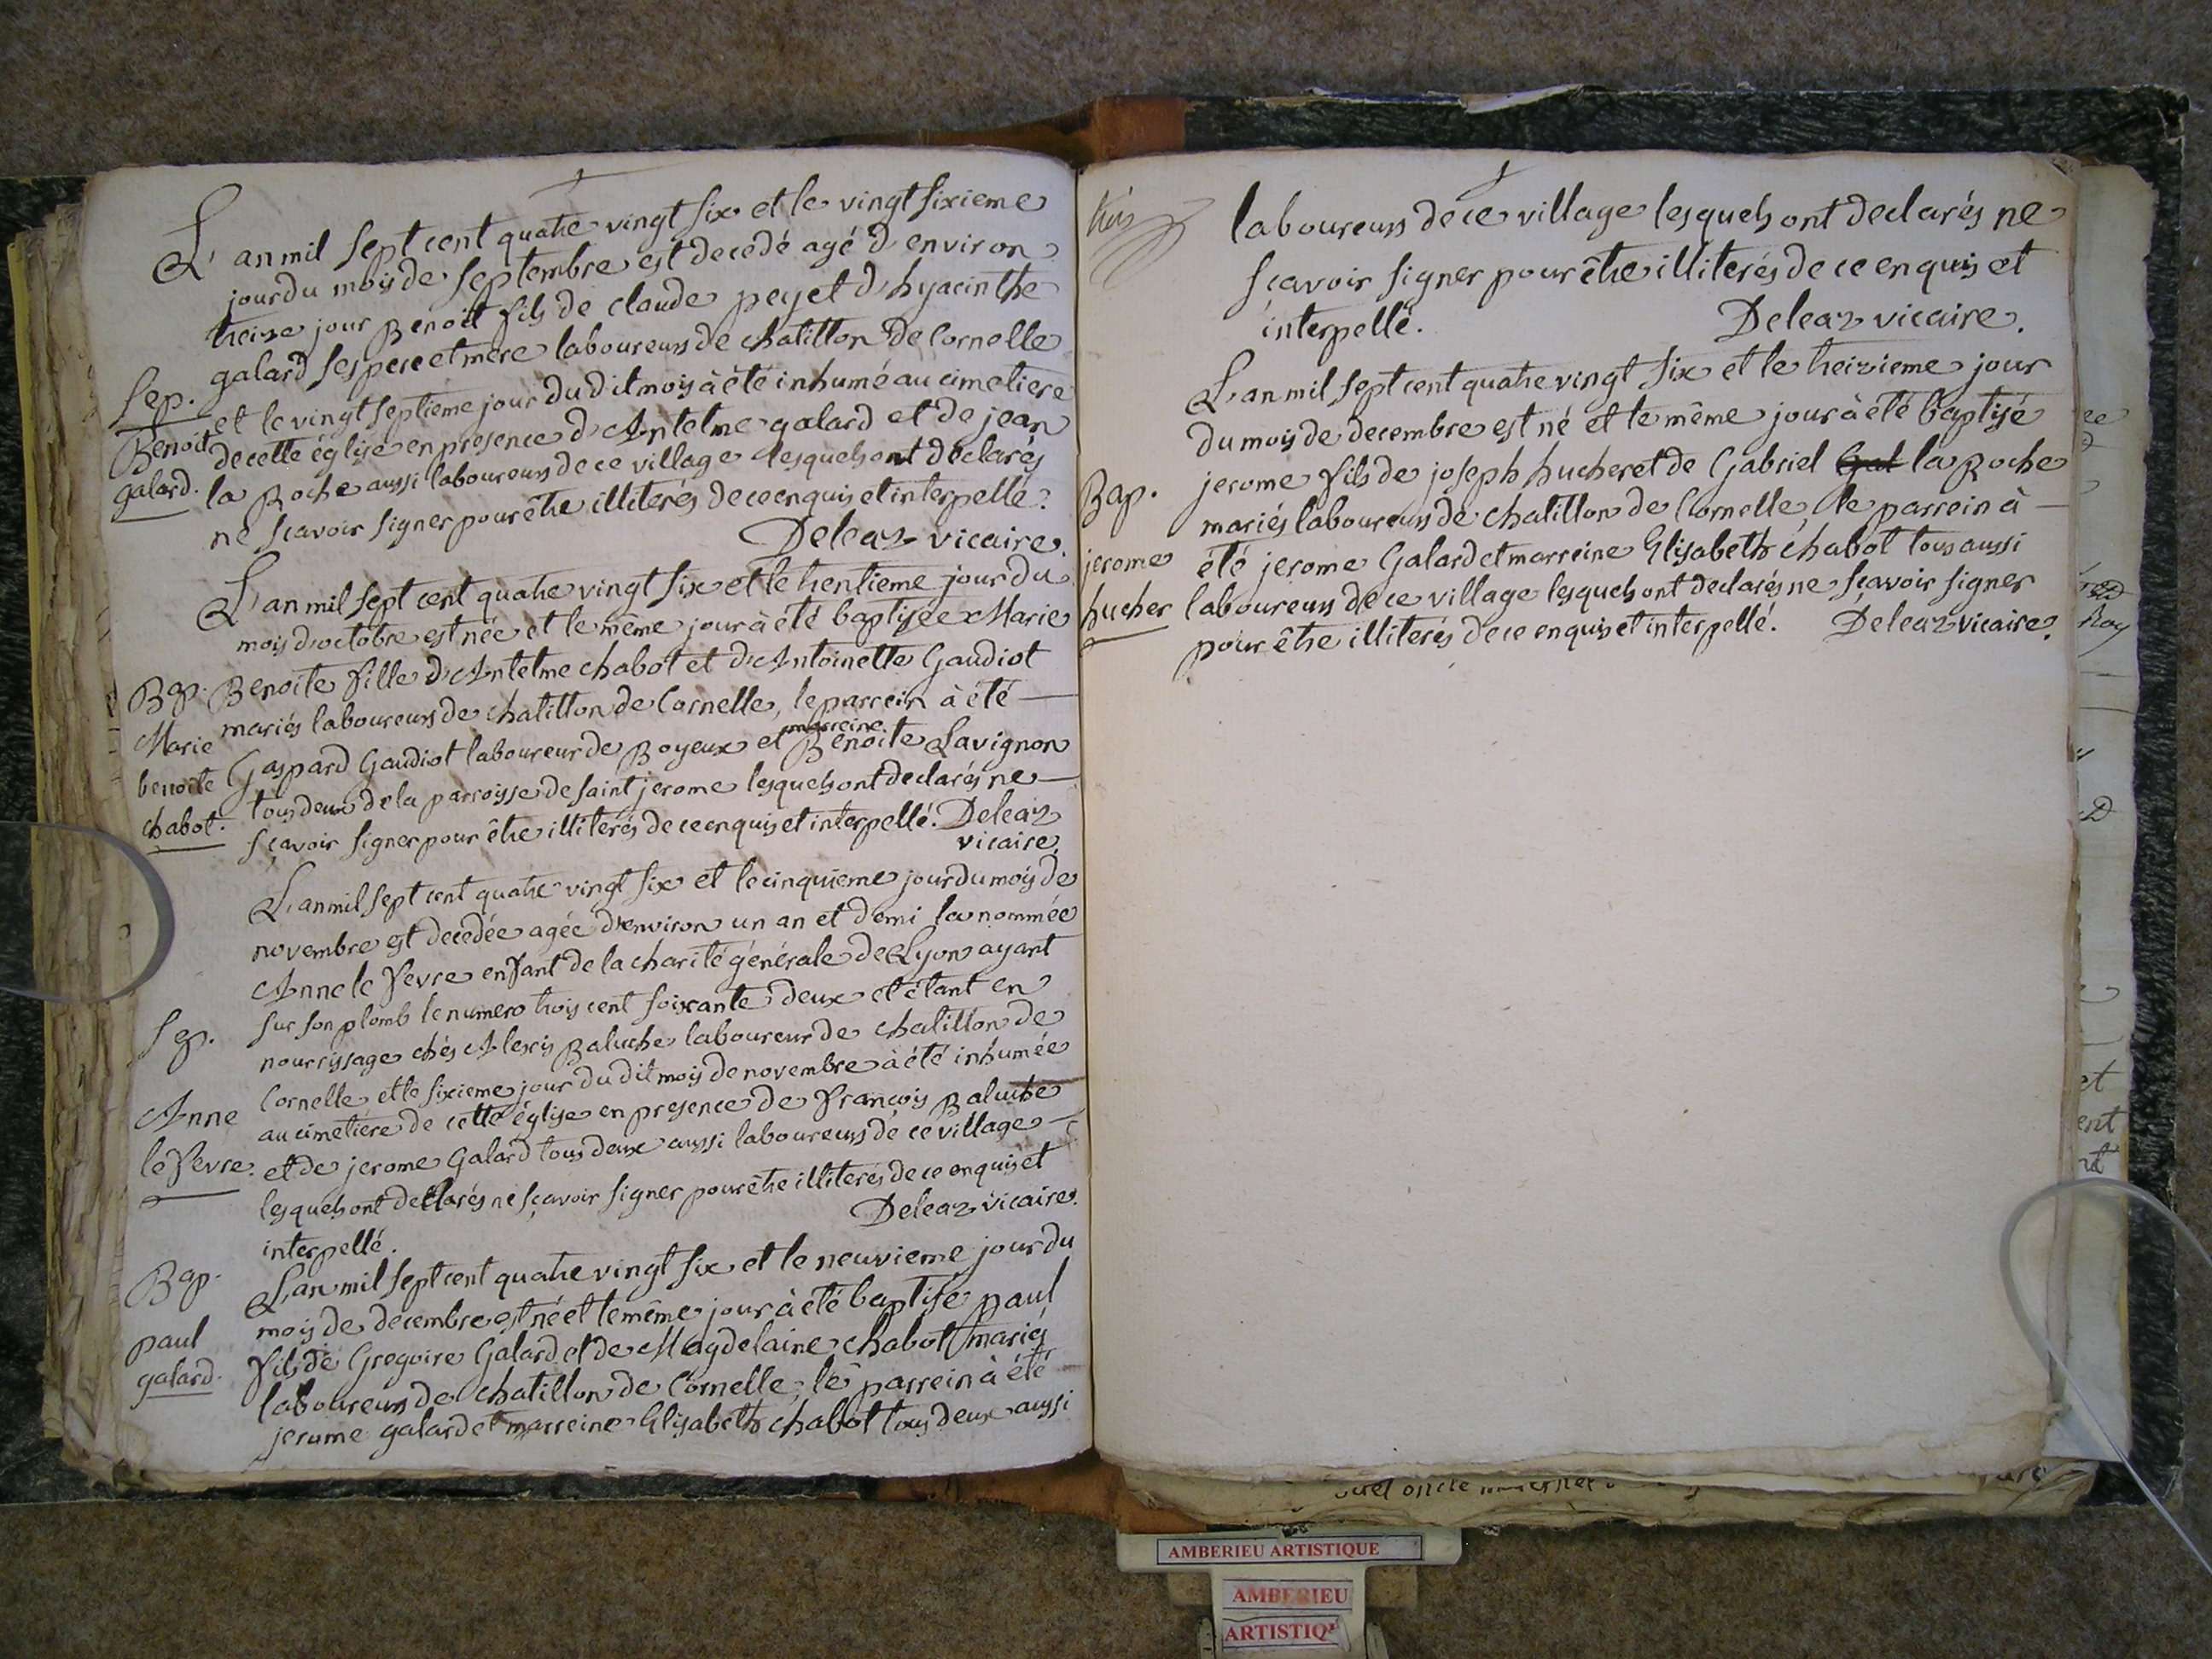 L'an mil sept cent quatre vingt six et le vingt sixieme
jour du mois de septembre est decédé agé d'environ
treize jour Benoit fils de claude pey et d'hyacinthe
galard ses pere et mere laboureurs de chatillon de Cornelle
Sep. et le vingt septieme jour du dit mois à été inhumé au cimetiere
Benoit de cette église en presence d'Antelme galard et de jean
galard. la Roche aussi laboureurs de ce village lesquels ont déclarés
ne sçavoir signer pour être illiterés de ce enquis et interpellé.
Deleaz vicaire.
L'an mil sept cent quatre vingt six et le trentieme jour du
mois d'octobre est née et le même jour à été baptisée Marie
Bap. Benoite fille d'Antelme chabot et d'Antoinette Gaudiot
mariés laboureurs de chatillon de Cornelle, le parrein à été
marreine
Marie Gaspard Gaudiot laboureur de Boyeux et Benoite Lavignon
benoite tous deux de la parroisse de saint jerome lesquels ont declarés ne
chabot. sçavoir signer pour être illiterés de ce enquis et interpellé. Deleaz
vicaire.
L'an mil sept cent quatre vingt six et le cinquieme jour du mois de
novembre est decedée agée d'environ un an et demi la nommée
Anne le fevre enfant de la charité générale de Lyon ayant
sur son plomb le numero trois cent soixante deux et étant en
Sep. nourrissage chés Alexis Baluche laboureur de chatillon de
Cornelle et le sixieme jour du dit mois de novembre à été inhumée
Anne au cimetiere de cette église en presence de François Baluche
le fevre. et de jerome Galard tous deux aussi laboureurs de ce village
lesquels ont declarés ne sçavoir signer pour être illiterés de ce enquis et
interpellé. Deleaz vicaire.
Bap. L'an mil sept cent quatre vingt six et le neuvieme jour du
mois de decembre est né et le même jour à été baptisé paul
paul fils de Gregoire Galard et de Magdelaine chabot mariés
galard. laboureurs de chatillon de Cornelle, le parrein à été
jerume galard et marreine Elisabeth chabot tous deux aussi
laboureurs de ce village lesquels ont declarés ne
sçavoir signer pour être illiterés de ce enquis et
interpellé. Deleaz vicaire.
L'an mil sept cent quatre vingt six et le treizieme jour
du mois de decembre est né et le même jour à été baptisé
Bap. jerome fils de joseph hucher et de Gabriel Gal la Roche
mariés laboureurs de chatillon de Cornelle, le parrein à
jerome été jerome Galard et marreine Elisabeth chabot tous aussi
hucher laboureurs de ce village lesquels ont declarés ne sçavoir signer
pour être illiterés de ce enquis et interpellé. Deleaz vicaire.
AMBERIEU ARTISTIQUE
AMBERIEU
ARTISTIQ